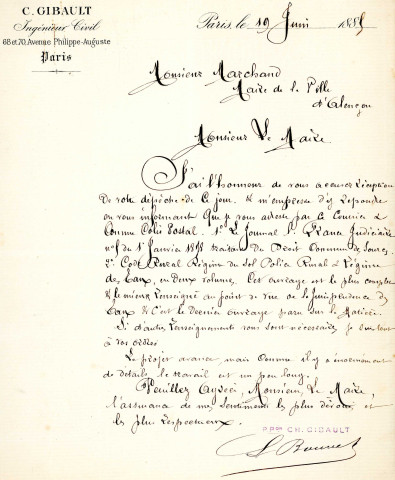 C. GIBAULT
Ingénieur Civil
68 et 70, Avenue Philippe-Auguste
Paris
Paris, le 19 Juin 1885
Monsieur Marchand
Maire de la Ville
d'Alençon
Monsieur Le Maire
J'ai l'honneur de vous accuser réception
de votre dépêche de ce jour & m'empresse d'y répondre
en vous informant que je vous adresse par ce Courrier &
comme Colis Postal. 1° Le Journal La France Judiciaire
n° du 1er Janvier traitant du Droit Commun des Sources.
2° Code Rural Régime du Sol Police Rural & Régime
des Eaux, en deux volumes. Cet ouvrage est le plus complet
& le mieux renseigné au point de vue de la Jurisprudence des
Eaux & C'est le dernier ouvrage paru sur la Matière.
Si d'autres renseignements vous sont nécessaires je suis tout
à vos ordres.
Le projet avance mais comme il y a énormément
de détails le travail est un peu long.
Veuillez agréer, Monsieur Le Maire,
l'assurance de mes sentiments les plus dévoués et
les plus respectueux.
PPon CH. GIBAULT